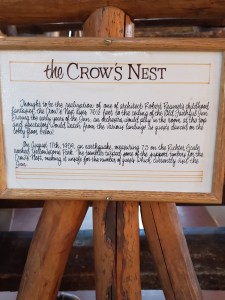 the CROW'S NEST
Thought to be the realization of one of architect Robert Reamer's childhood
fantasies, the Crow's Nest rises 76½ feet to the ceiling of the Old Faithful Inn.
During the early years of the Inn, an orchestra would play in the room at the top
and spectators would watch from the various landings as guests danced on the
lobby floor below.
On August 17th, 1959, an earthquake, measuring 7.5 on the Richter Scale,
rocked Yellowstone Park. The tremblor twisted some of the support timbers for the
Crow's Nest, making it unsafe for the number of guests which currently visit the
Inn.